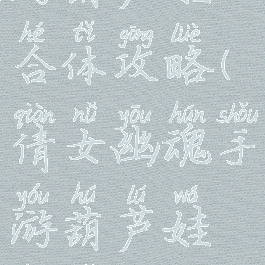 hé tǐ gōng lüè
合体攻略(
qiàn nǚ yōu hún shǒu
倩女幽魂手
yóu hú lú wá
游葫芦娃